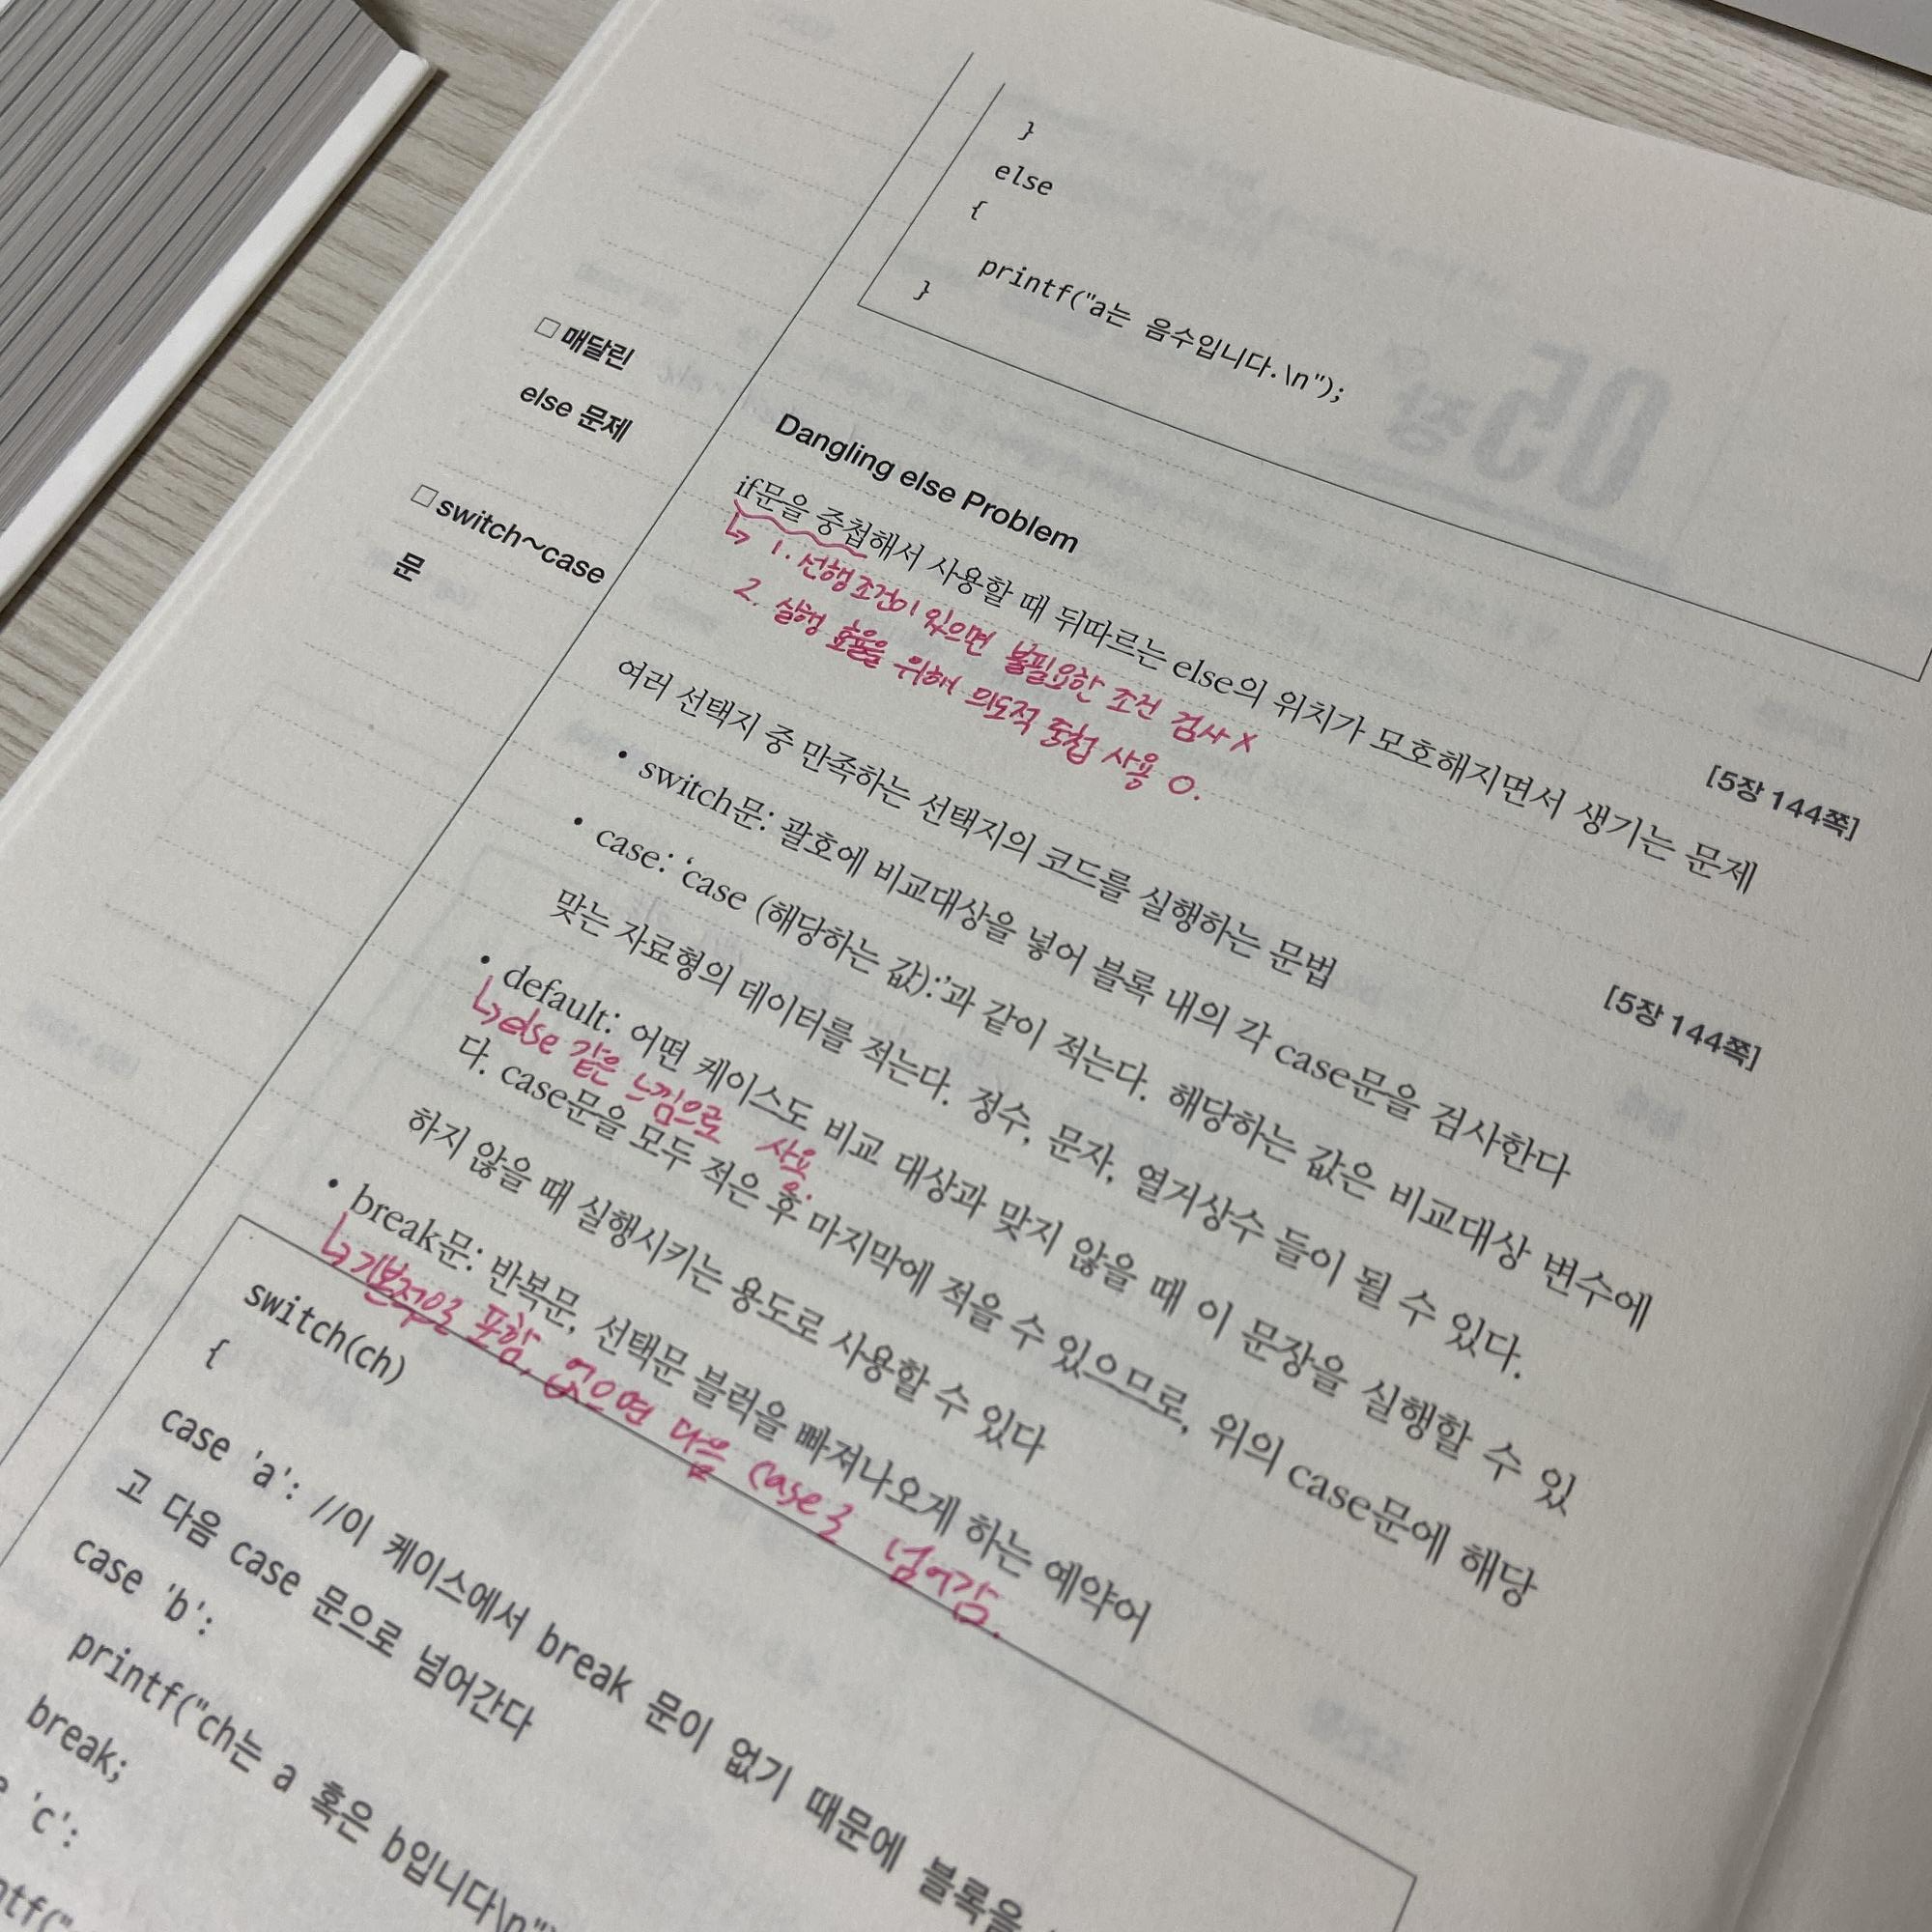 }
else
{
printf("a는 음수입니다.\n");
}
□ 매달린
else 문제
Dangling else Problem
[5장 144쪽]
if문을 중첩해서 사용할 때 뒤따르는 else의 위치가 모호해지면서 생기는 문제
↳ 1. 선행조건이 있으면 불필요한 조건 검사 X
2. 실행 효율을 위해 의도적 중첩 사용 O.
□ switch~case
문
[5장 144쪽]
여러 선택지 중 만족하는 선택지의 코드를 실행하는 문법
• switch문: 괄호에 비교대상을 넣어 블록 내의 각 case문을 검사한다
• case: ‘case (해당하는 값):’과 같이 적는다. 해당하는 값은 비교대상 변수에
맞는 자료형의 데이터를 적는다. 정수, 문자, 열거상수 들이 될 수 있다.
• default: 어떤 케이스도 비교 대상과 맞지 않을 때 이 문장을 실행할 수 있
↳ else 같은 느낌으로 사용.
다. case문을 모두 적은 후 마지막에 적을 수 있으므로, 위의 case문에 해당
하지 않을 때 실행시키는 용도로 사용할 수 있다
• break문: 반복문, 선택문 블럭을 빠져나오게 하는 예약어
↳ 기본적으로 포함, 없으면 다음 case로 넘어감.
switch(ch)
{
case 'a': //이 케이스에서 break 문이 없기 때문에 블록을
고 다음 case 문으로 넘어간다
case 'b':
printf("ch는 a 혹은 b입니다\n")
break;
'c':
ntf("